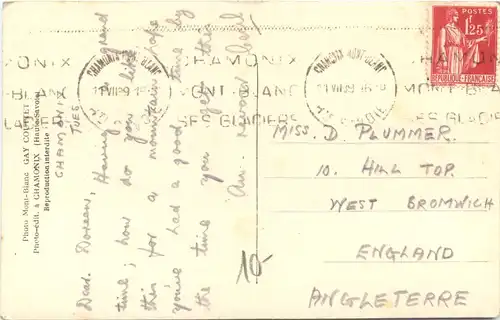 CHAMONIX
TUES
Dear Doreen, Having a grand
time; how do you like
this for a mountain, hope
you've had a good time by
the time you get this
Au revoir
MISS. D. PLUMMER.
10. HILL TOP.
WEST BROMWICH
ENGLAND
ANGLETERRE
10-
POSTES
1F25
REPUBLIQUE FRANÇAISE
CHAMONIX MONT-BLANC
CHAMONIX MONT-BLANC
CHAMONIX
MONT-BLANC
SES GLACIERS
Photo Mont-Blanc GAY COUTTET
Photo-édit. à CHAMONIX (Haute-Savoie)
Reproduction interdite